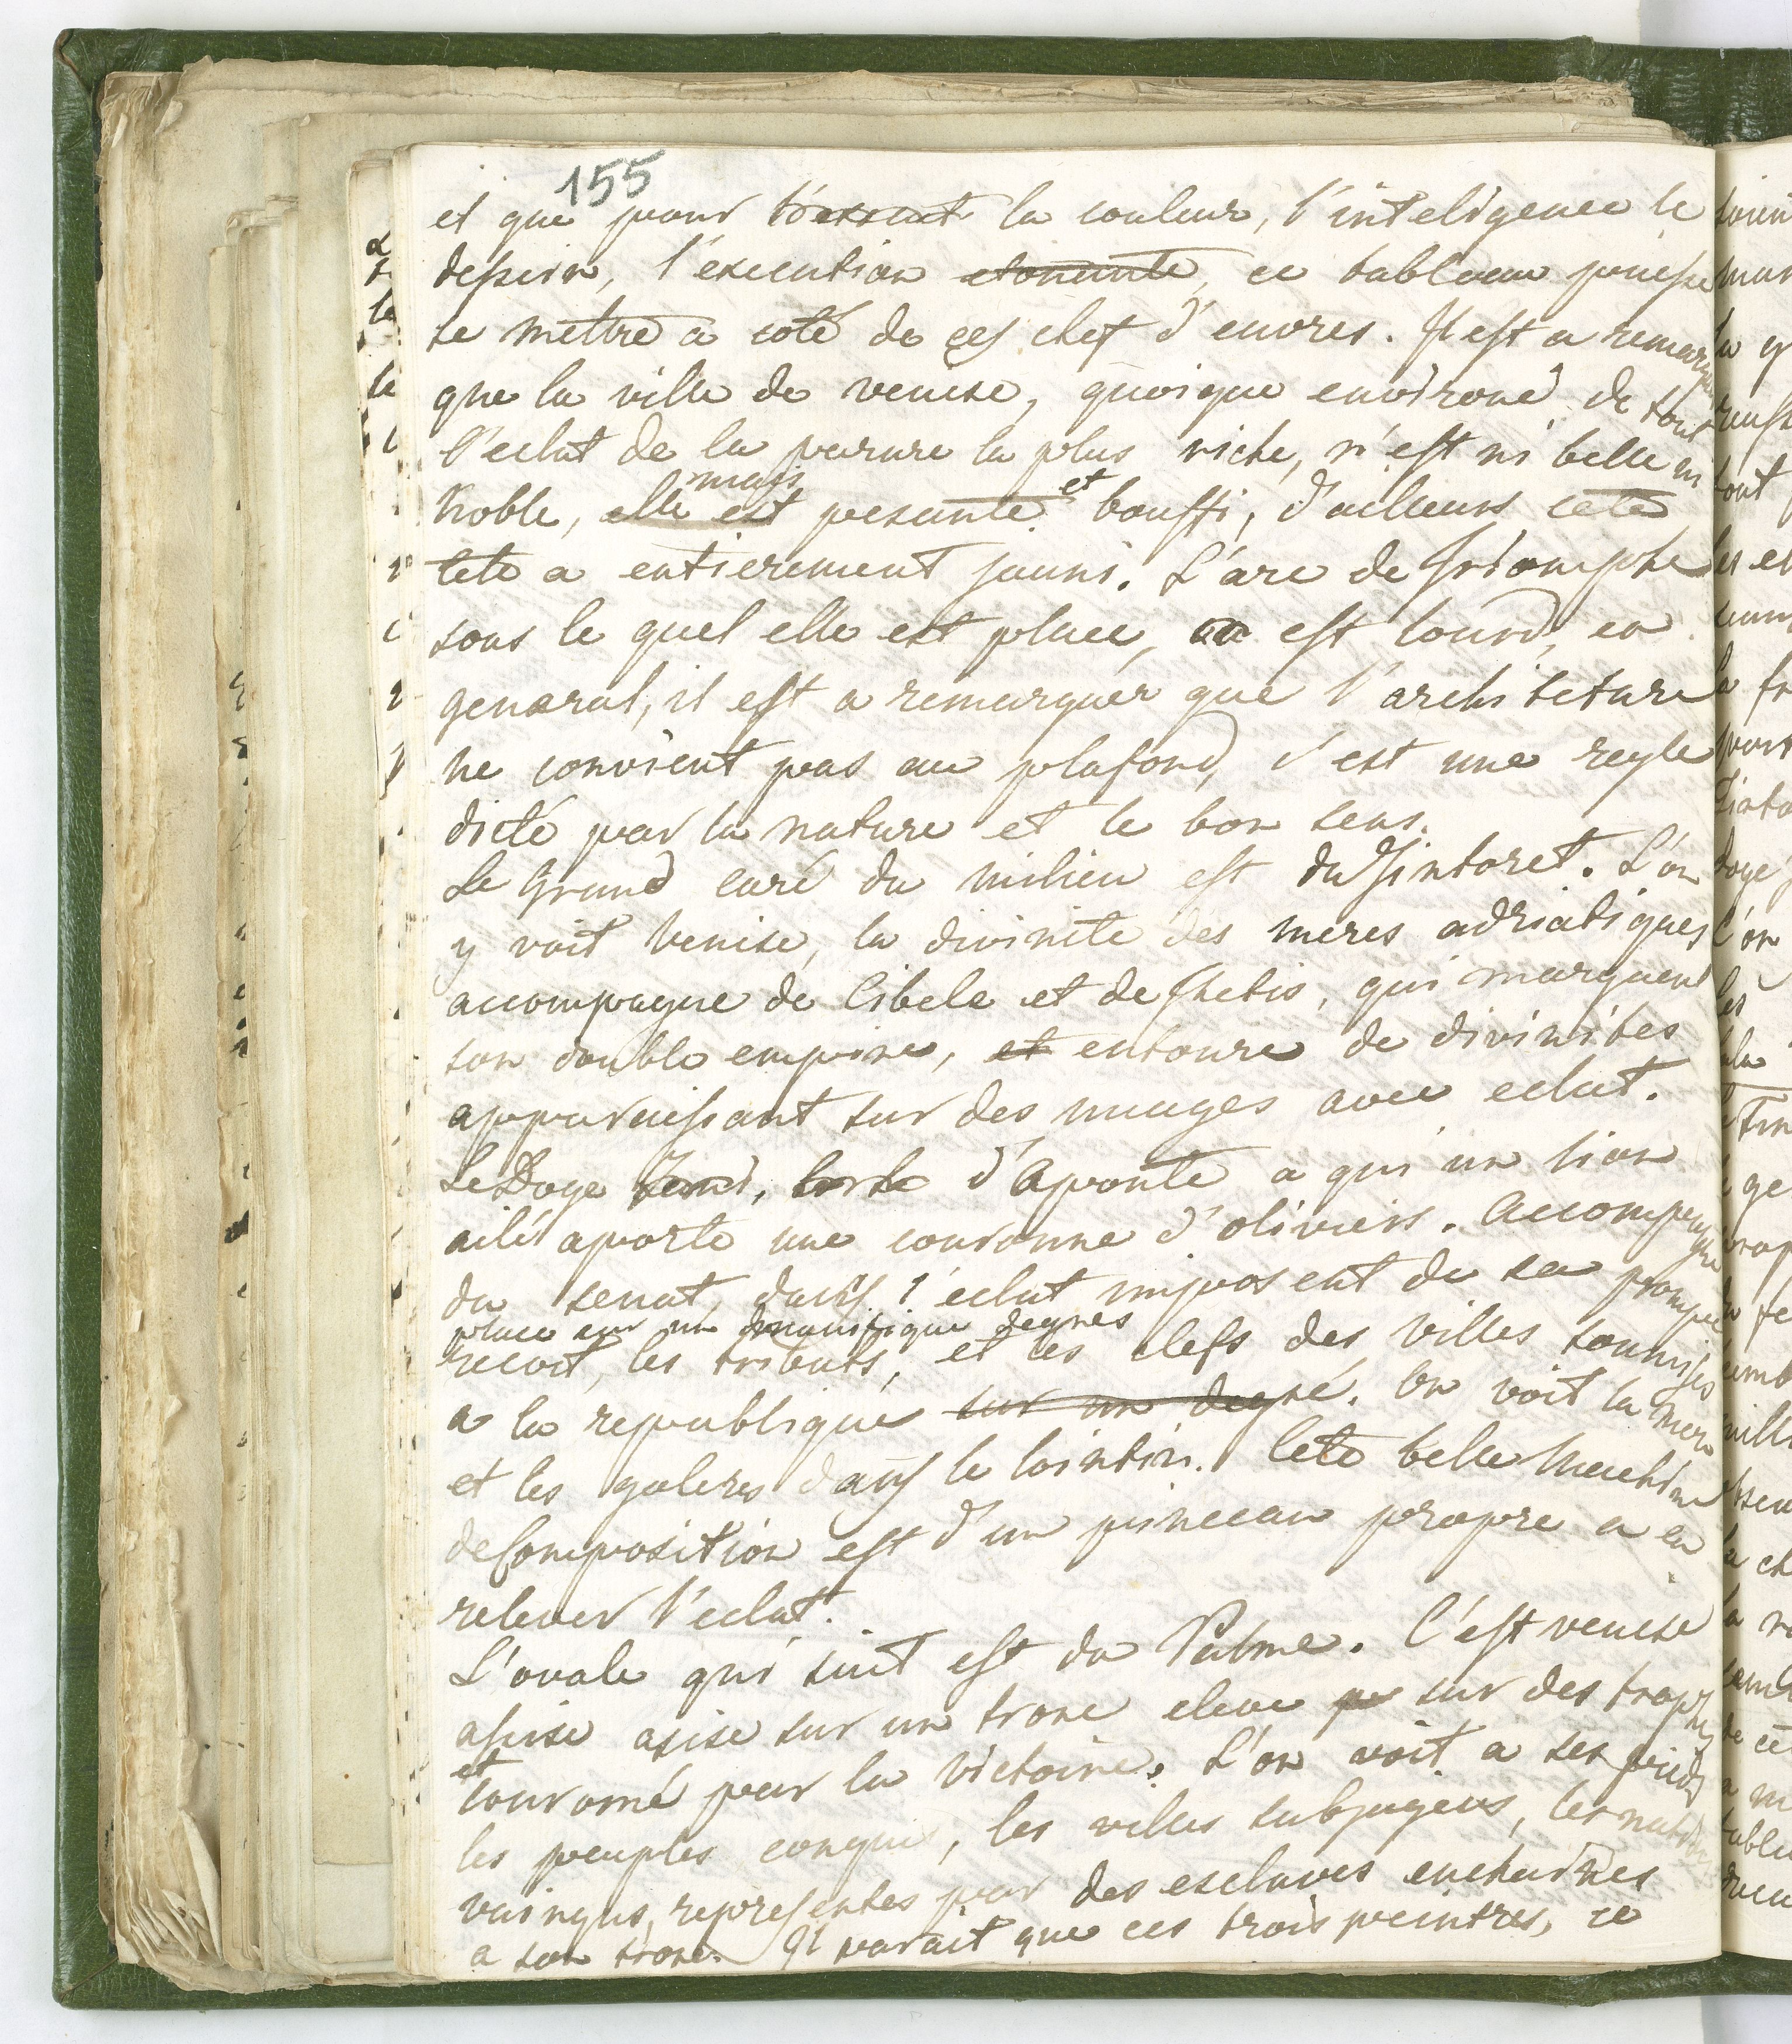 155
et que pour la couleur, l'inteligence le
dessein, l'execution etonante, ce tableau puisse
se mettre a coté de ces chef d'euvres. Il est a remarquer
que la ville de venise, quoique environé de tout
l'eclat de la parure la plus riche, n'est ni belle ni
mais et
noble, elle est pesante bouffi, d'ailleurs cete
tete a entierement jauni. L'arc de triomphe
sous le quel elle est placé, est lourd, en
general, il est a remarquer que l'architeture
ne convient pas au plafond, c'est une regle
dicté par la nature et le bon sens.
Le Grand caré du milieu est du Tintoret. L'on
y voit Venise, la divinite des meres adriatiques
accompagne de Cibele et de Thetis, qui marquent
son double empire, et entoure de divinites
apparaissant sur des nuages avec eclat.
Le Doge d'aponte a qui un lion
ailé aporte une couronne d'oliviers. Accompagné
du senat, dans l'eclat imposent de sa pompe
place sur un magnifique degres
recoit, les tributs, et les clefs des villes soumises
a la republique sur un degré. On voit la mere
et les galeres dans le lointin. Cete belle machine
de Composition est d'un pinceau propre a en
relever l'eclat.
L'ovale qui suit est du Palme. C'est venise
assise asise sur un trone eleve sur des trophes
et
couronné par la Victoire. L'on voit a ses pieds
les peuples conquis, les villes subjugeus, les nations
vaingus, representes par des esclaves enchaines
a son trone. Il parait que ces trois peintres, ce